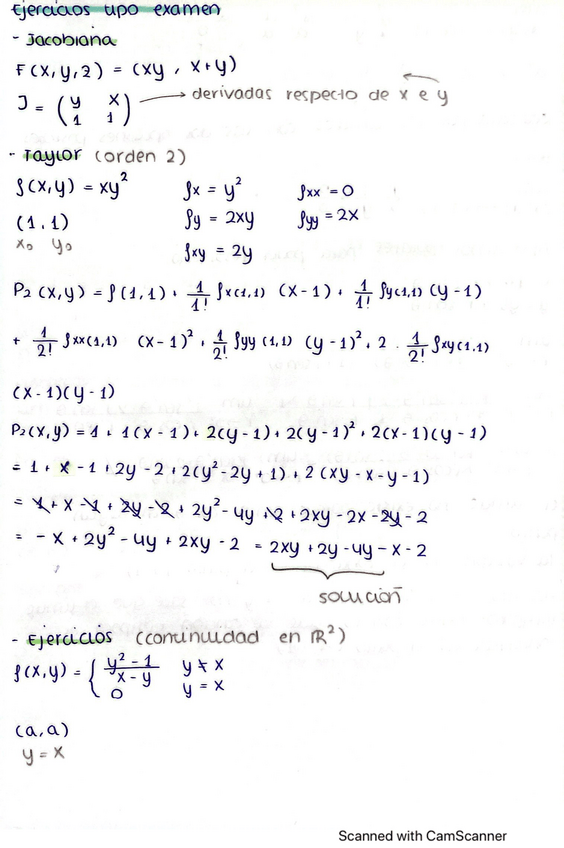 Ejercicios tipo examen
- Jacobiana
F(x,y,z) = (xy, x+y)
J = (y x
1 1) → derivadas respecto de x e y
- Taylor (orden 2)
f(x,y) = xy² fx = y² fxx = 0
(1,1) fy = 2xy fyy = 2x
x₀ y₀ fxy = 2y
P₂(x,y) = f(1,1) + 1/1! fx(1,1) (x-1) + 1/1! fy(1,1) (y-1)
+ 1/2! fxx(1,1) (x-1)² + 1/2! fyy(1,1) (y-1)² + 2 · 1/2! fxy(1,1)
(x-1)(y-1)
P₂(x,y) = 1 + 1(x-1) + 2(y-1) + 2(y-1)² + 2(x-1)(y-1)
= 1 + x - 1 + 2y - 2 + 2(y² - 2y + 1) + 2(xy - x - y - 1)
= 1 + x - 1 + 2y - 2 + 2y² - 4y + 2 + 2xy - 2x - 2y - 2
= - x + 2y² - 4y + 2xy - 2 = 2xy + 2y - 4y - x - 2
solución
- Ejercicios (continuidad en ℝ²)
f(x,y) = { y² - 1 / x - y y ≠ x
0 y = x
(a,a)
y = x
Scanned with CamScanner